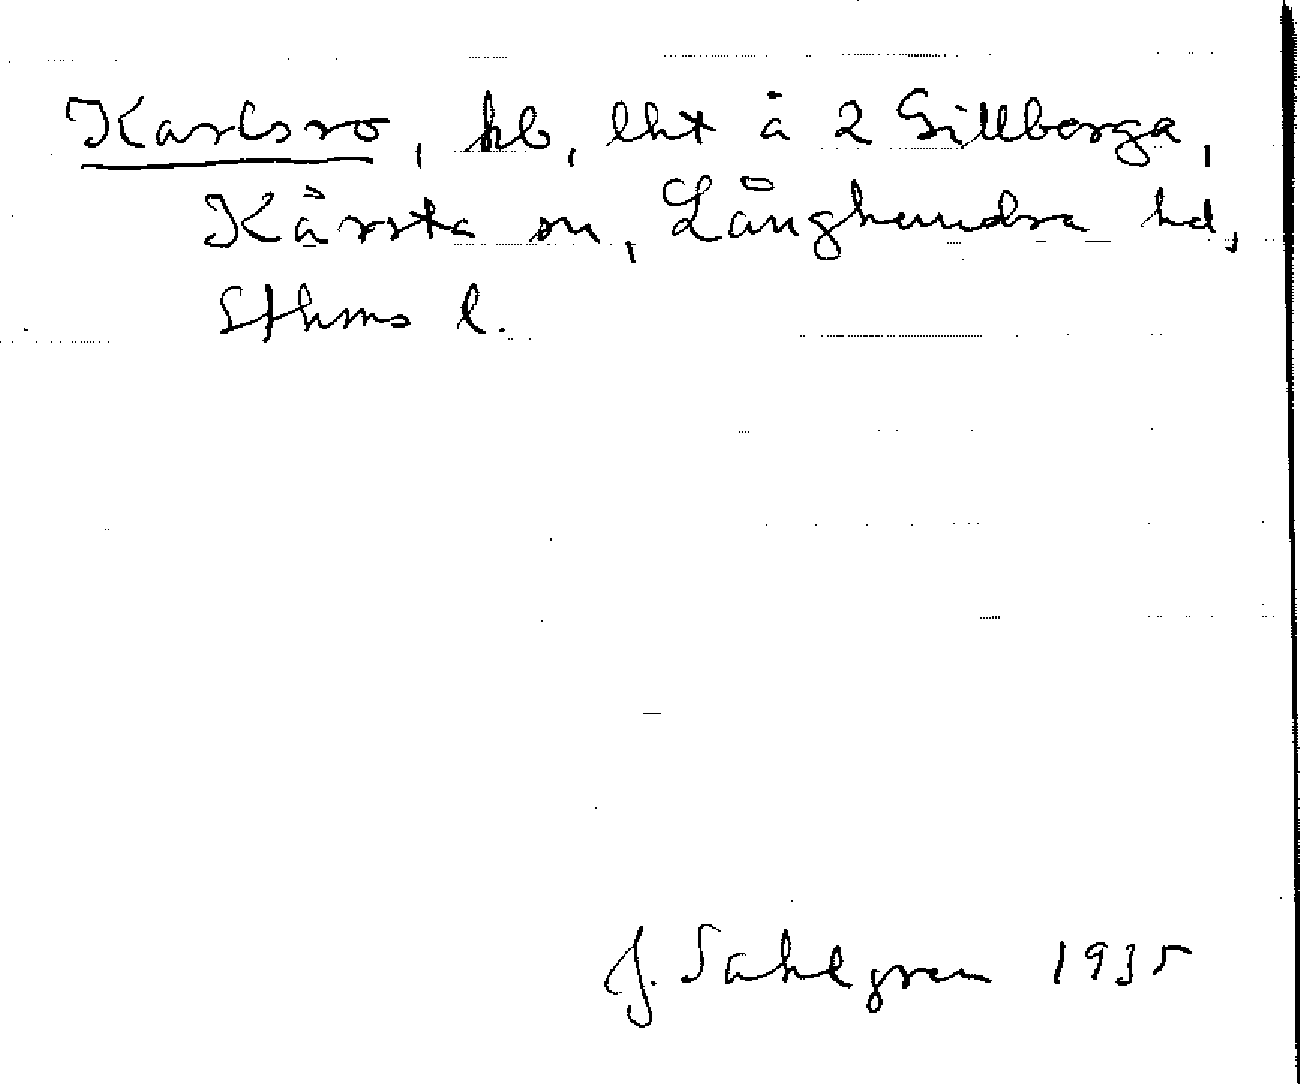 Karlsro, hb, lht å 2 Gillberga,
Kårsta sn, Långhundra hd,
Sthms l.
J. Sahlgren 1935